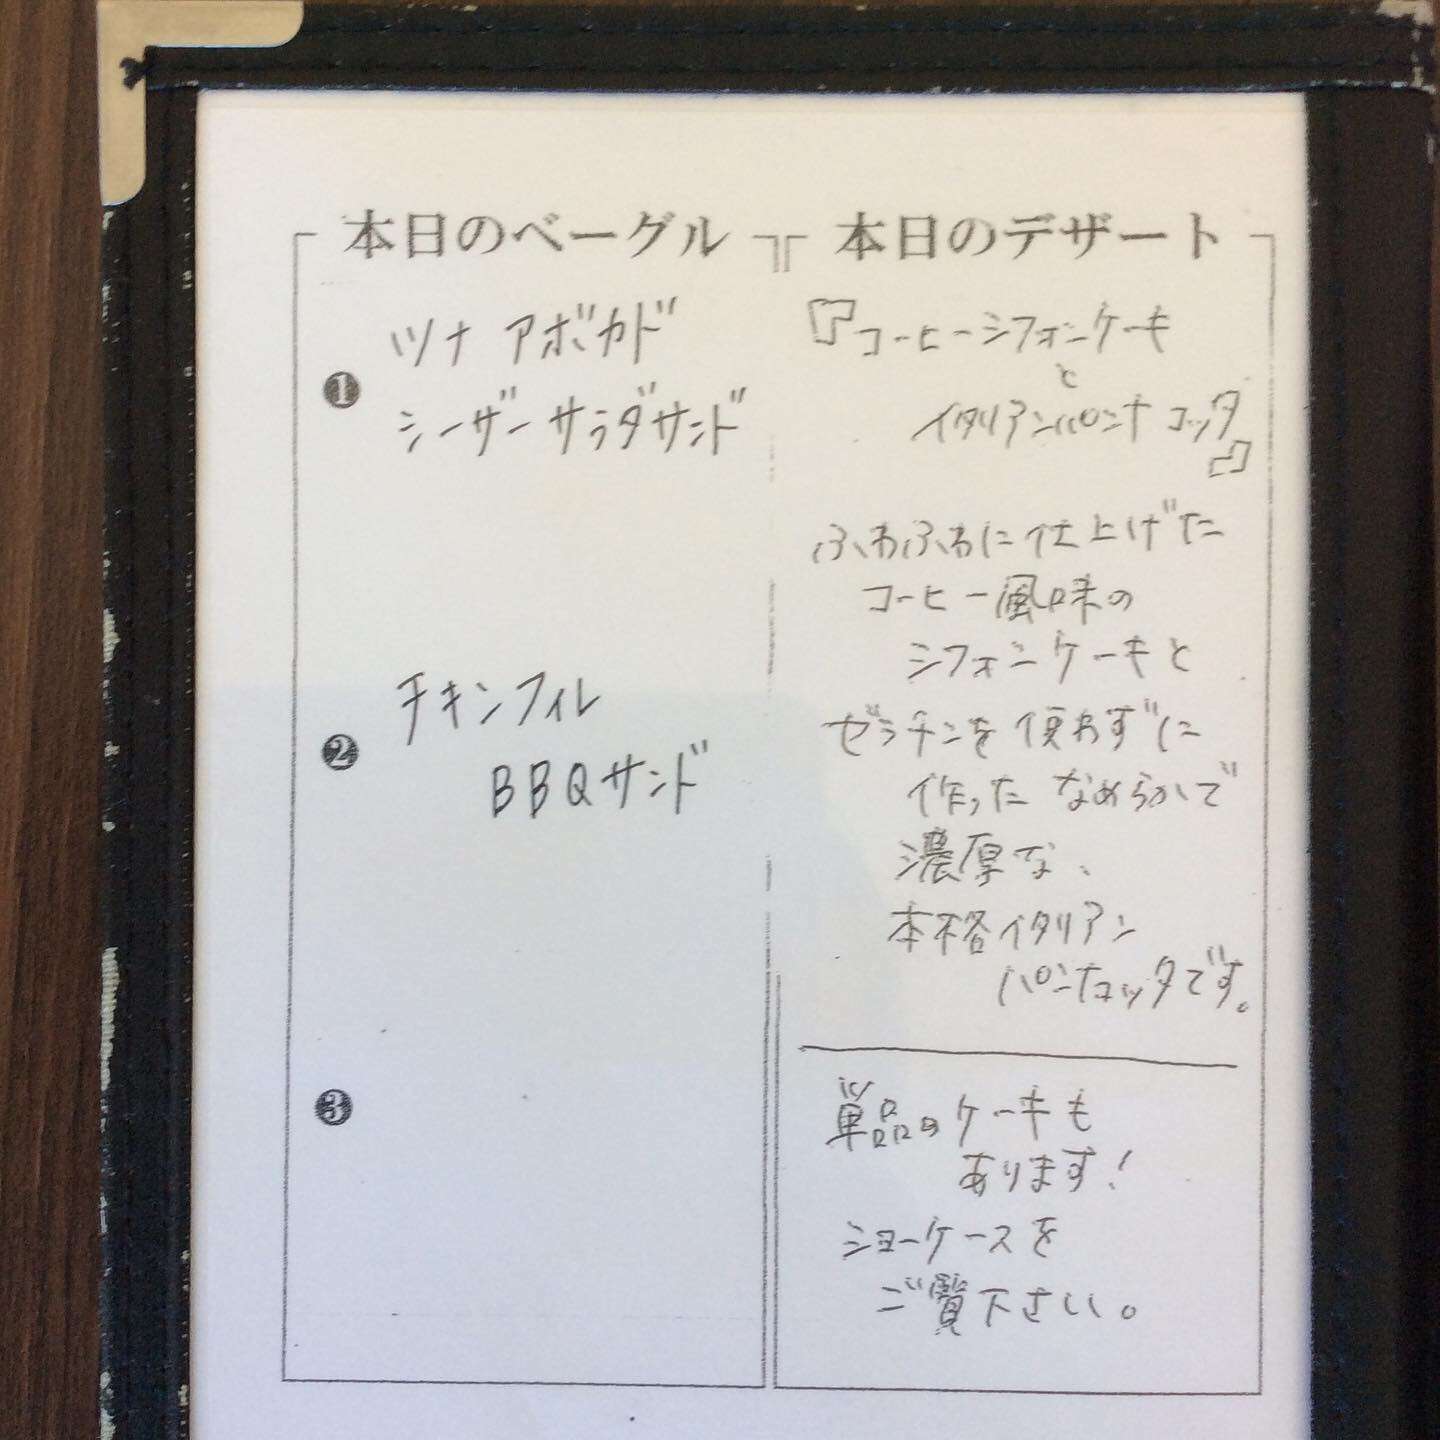 本日のベーグル
❶
ツナ アボカド
シーザーサラダサンド
❷
チキンフィレ
BBQサンド
❸
本日のデザート
『コーヒーシフォンケーキ
と
イタリアンパンナコッタ
』
ふわふわに仕上げた
コーヒー風味の
シフォンケーキと
ゼラチンを使わずに
作った なめらかで
濃厚な、
本格イタリアン
パンナコッタです。
単品のケーキも
あります!
ショーケースを
ご覧下さい。